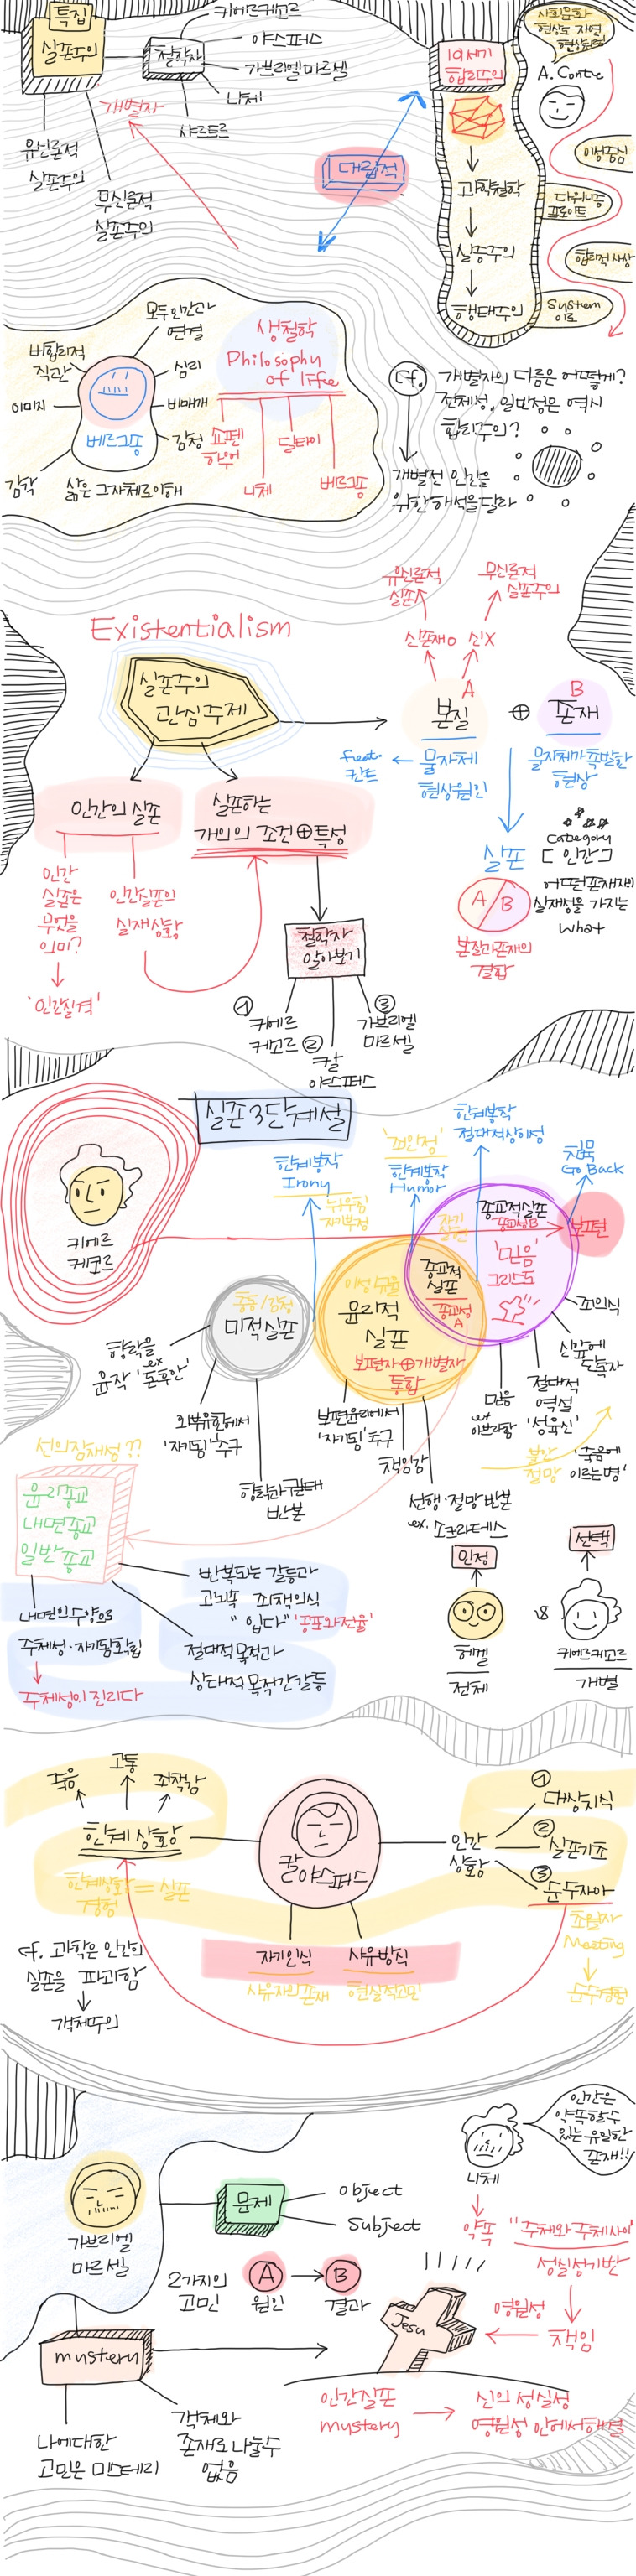 특집
실존주의
철학자
키에르케고르
야스퍼스
가브리엘 마르셀
니체
샤르트르
개별자
유신론적
실존주의
무신론적
실존주의
대립적
19세기
합리주의
과학철학
실증주의
행태주의
A. Comte
이성중심
다위니즘
프로이트
합리적 사상
System
이론
모두 인간과
연결
비합리적
직관
심리
이미지
비매개
베르그송
감정
감각
삶은 그 자체로 이해
생철학
Philosophy
of life
쇼펜
하우어
니체
딜타이
베르그송
Cf.
개별자의 다름은 어떻게?
전체성, 일반성은 역시
합리주의?
개별적 인간을
위한 해석을 달라
Existentialism
실존주의
관심주제
유신론적
실존
무신론적
실존주의
신존재O
신X
A
본질
⊕
B
존재
물자체
현상원인
칸트
물자체가 촉발한
현상
실존
A
B
본질과 존재의
결합
Category
[인간]
어떤 존재자의
실재성을 가지는
What
인간의 실존
실존하는
개인의 조건⊕특성
인간
실존은
무엇을
의미?
'인간질격'
인간실존의
실재상황
철학자
알아보기
①
키에르
케고르
②
칼
야스퍼스
③
가브리엘
마르셀
실존 3단계설
키에르
케고르
한계봉착
Irony
뉘우침
자기부정
'죄인정'
한계봉착
Humor
한계봉착
절대적상이성
침묵
Go Back
보편
미적실존
향락을
ex
윤작 '돈후안'
외부유한에서
'자기됨' 추구
향락과 권태
반본
윤리적
실존
보편자⊕개별자
통합
보편윤리에서
'자기됨' 추구
책임감
선행·절망 반본
ex. 소크라테스
종교적
실존
종교성
A
종교적실존
종교성B
'믿음'
그리스도
죄의식
신앞에
단독자
절대적
역설
'성육신'
믿음
ex
아브라함
불안
절망
'죽음에
이르는병'
선의 잠재성??
윤리종교
내면종교
일반종교
내면의 수양으로
주체성·자기됨 확립
주체성이 진리다
반복되는 갈등과
고뇌 속 죄책의식
"입다" '공포와 전율'
절대적 목적과
상대적 목적간 갈등
인정
헤겔
전체
vs
선택
키에르케고르
개별
죽음
고통
죄책감
한계 상황
한계상황=실존
경험
칼야스퍼스
인간
상황
①
대상지식
②
실존기초
③
순수자아
초월자
Meeting
순수경험
자기인식
사유자의 존재
사유방식
현실적고민
cf. 과학은 인간의
실존을 파괴함
객체주의
가브리엘
마르셀
문제
Object
Subject
2가지의
고민
A
원인
B
결과
니체
인간은
약속할 수
있는 유일한
존재!!
약속
"주체와 주체사이"
성실성기반
책임
영원성
Jesu
mystery
나에 대한
고민은 미스테리
객체와
존재로 나눌수
없음
인간실존
mystery
신의 성실성
영원성 안에서 해결